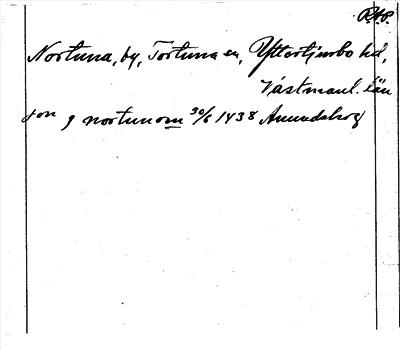 RAP.
Nortuna, by, Tortuna sn, Yttertjurbo hd,
Västmanl. län
jon j nortunom 30/6 1438 Amundskog